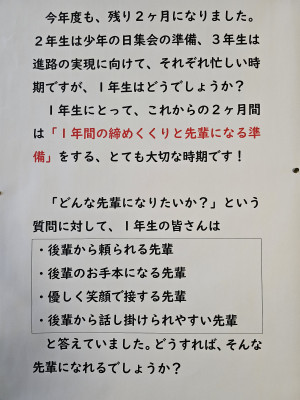 今年度も、残り２ヶ月になりました。
２年生は少年の日集会の準備、３年生は
進路の実現に向けて、それぞれ忙しい時
期ですが、１年生はどうでしょうか？
１年生にとって、これからの２ヶ月間
は「１年間の締めくくりと先輩になる準
備」をする、とても大切な時期です！
「どんな先輩になりたいか？」という
質問に対して、１年生の皆さんは
・後輩から頼られる先輩
・後輩のお手本になる先輩
・優しく笑顔で接する先輩
・後輩から話し掛けられやすい先輩
と答えていました。どうすれば、そんな
先輩になれるでしょうか？